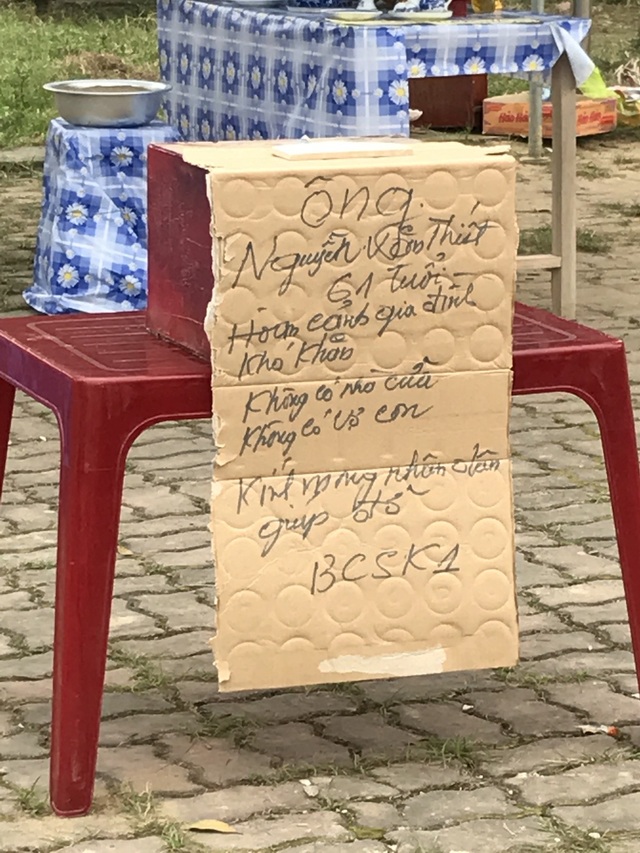 Ông
Nguyễn Văn Thiết
61 tuổi
Hoàn cảnh gia đình
khó khăn
Không có nhà cửa
Không có vợ con
Kính mong nhân dân
giúp đỡ
BCSK1
Hảo Hảo